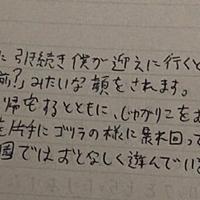 に引続き僕が迎えに行くと
前?」みたいな顔をされます。
帰宅するとともに、じゃがりこをお
を片手にゴリラの様に暴れ回って
園ではおとなしく遊んでい